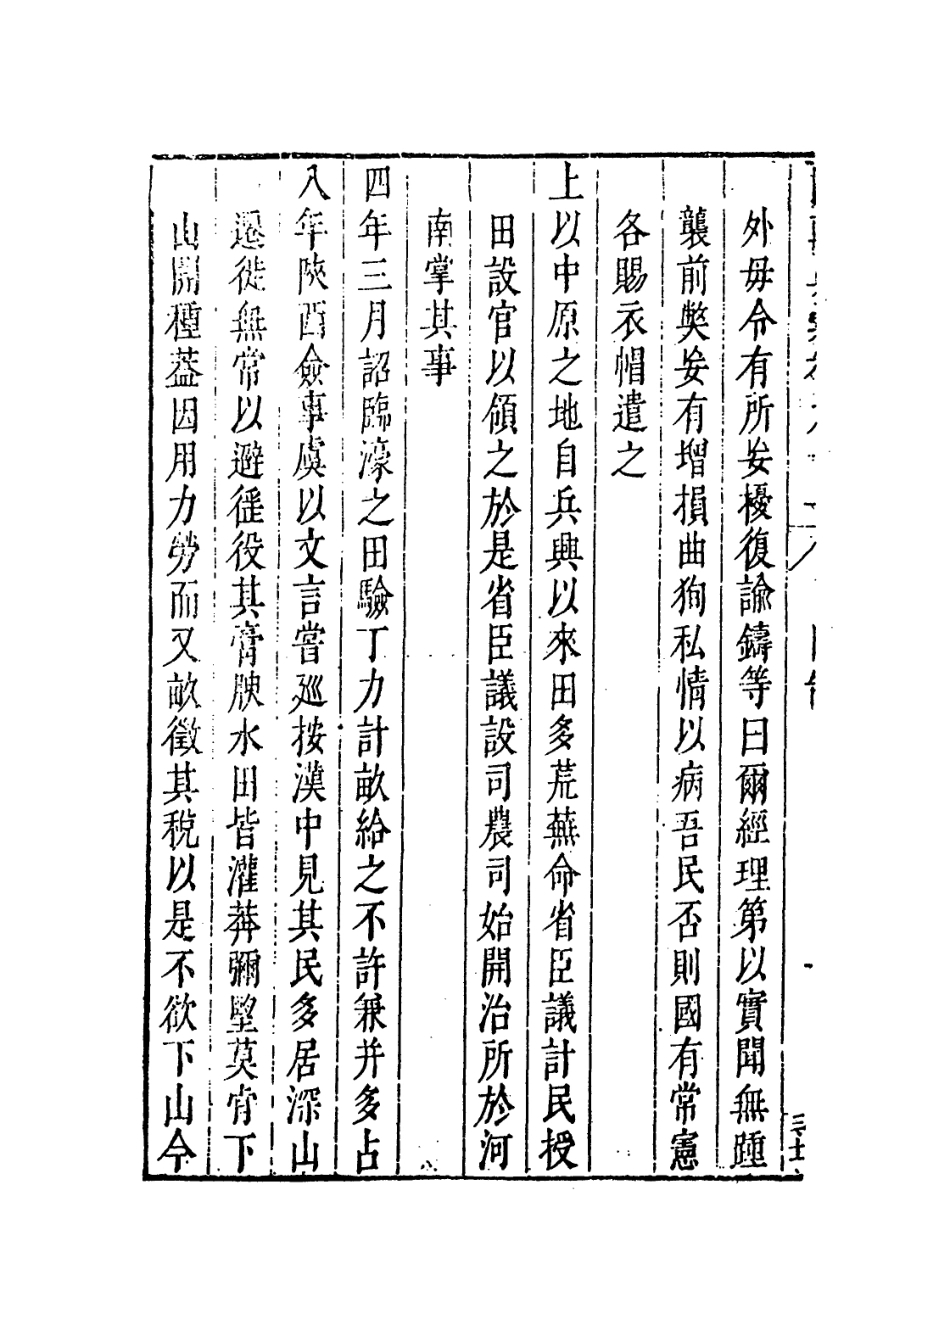 外毋令有所妄擾復諭鑄等曰爾經理第以實聞無踵
襲前弊妄有增損曲狥私情以病吾民否則國有常憲
各賜衣帽遣之
上以中原之地自兵興以來田多荒蕪命省臣議計民授
田設官以領之於是省臣議設司農司始開治所於河
南掌其事
四年三月詔臨濠之田驗丁力計畝給之不許兼并多占
八年陝西僉事虞以文言嘗廵按漢中見其民多居深山
遷徙無常以避徭役其膏腴水田皆灌莽彌望莫肯下
山開種葢因用力勞而又畝徵其稅以是不欲下山今